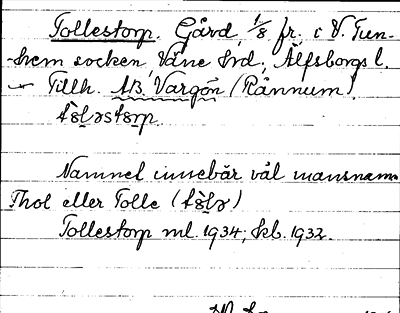 Tollestorp. Gård, 1/8 fr. i V. Tun-
-hem socken, Väne hrd, Älfsborgs l.
Tillh. AB. Vargön (Rånnum).
Namnet innebär väl mansnamn
Thol eller Tolle
Tollestorp ml. 1934; skb. 1932.